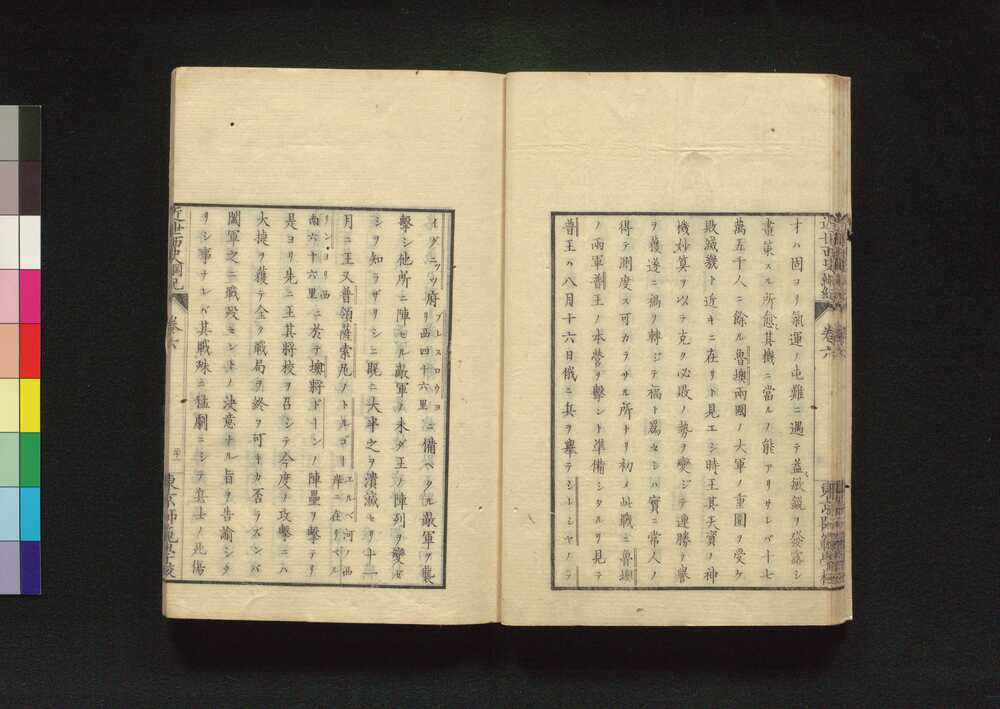 才ハ固ヨリ氣運ノ屯難ニ遇テ益敏鋭ヲ發露シ
畫策スル所愈其機ニ當ルノ能アリサレバ十七
萬五千人ニ餘ル魯墺兩國ノ大軍ノ重圍ヲ受ケ
敗滅幾ト近キニ在リト見エシ時王其天賓ノ神
機妙算ヲ以テ克ク必敗ノ勢ヲ變ジテ連勝ノ譽
ヲ獲遂ニ禍ヲ轉ジテ福ト爲セシハ實ニ常人ノ
得テ測度ス可カラサル所ナリ初メ此戰ニ魯墺
ノ兩軍普王ノ本營ヲ擊シト準備シタルヲ見テ
普王ハ八月十六日俄ニ兵ヲ擧テシトシヤノテ
近世西史綱紀 卷六
東京師範學校
イグニッツ府ブレスロウヨリ西四十六里ニ備ヘタル敵軍ヲ襲
擊シ他所ニ陣セル敵軍ノ未ダ王ノ陣列ヲ變ゼ
シヲ知ラザリシニ既ニ大半之ヲ潰滅セリ十一
月ニ王又普領薩索尼ノトルゴーエルベ河ノ西岸ニ在リベル
リンヨリ西南六十六里ニ於テ墺將ドーンノ陣壘ヲ擊テリ
是ヨリ先ニ王其將校ヲ召シテ今度ノ攻擊ニハ
大捷ヲ獲テ全ク戰局ヲ終フ可キカ否ラズンバ
闔軍之ニ戰歿セントノ決意ナル旨ヲ告諭シタ
リシ事ナレバ其戰殊ニ猛劇ニシテ兵士ノ死傷
近世西史綱紀 卷六
東京師範學校